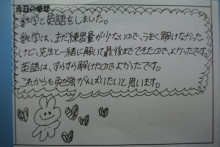 今日の感想
数学と英語をしました。
数学は、まだ練習量が少ないので、うまく解けなかった
けど、先生と一緒に解いて最後までできたので、よかったです。
英語は、すらすら解けたのでよかったです。
これからも頑張りたいと思います。